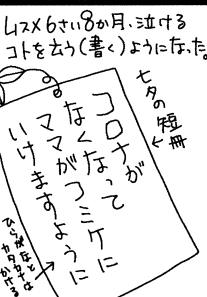 ムスメ6さい8か月、泣ける
コトを云う(書く)ようになった。
七夕の短冊
コロナが
なくなって
ママがコミケに
いけますように
ひらがなと
カタカナは
かける